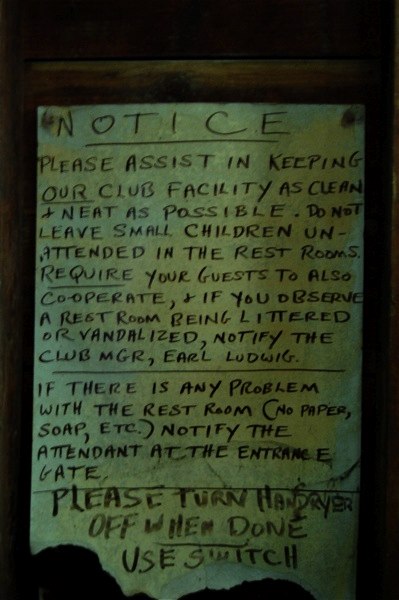 NOTICE
PLEASE ASSIST IN KEEPING
OUR CLUB FACILITY AS CLEAN
+ NEAT AS POSSIBLE. DO NOT
LEAVE SMALL CHILDREN UN-
ATTENDED IN THE REST ROOMS.
REQUIRE YOUR GUESTS TO ALSO
CO-OPERATE, + IF YOU OBSERVE
A REST ROOM BEING LITTERED
OR VANDALIZED, NOTIFY THE
CLUB MGR, EARL LUDWIG.
IF THERE IS ANY PROBLEM
WITH THE REST ROOM (NO PAPER,
SOAP, ETC.) NOTIFY THE
ATTENDANT AT THE ENTRANCE
GATE.
PLEASE TURN HANDRYER
OFF WHEN DONE
USE SWITCH